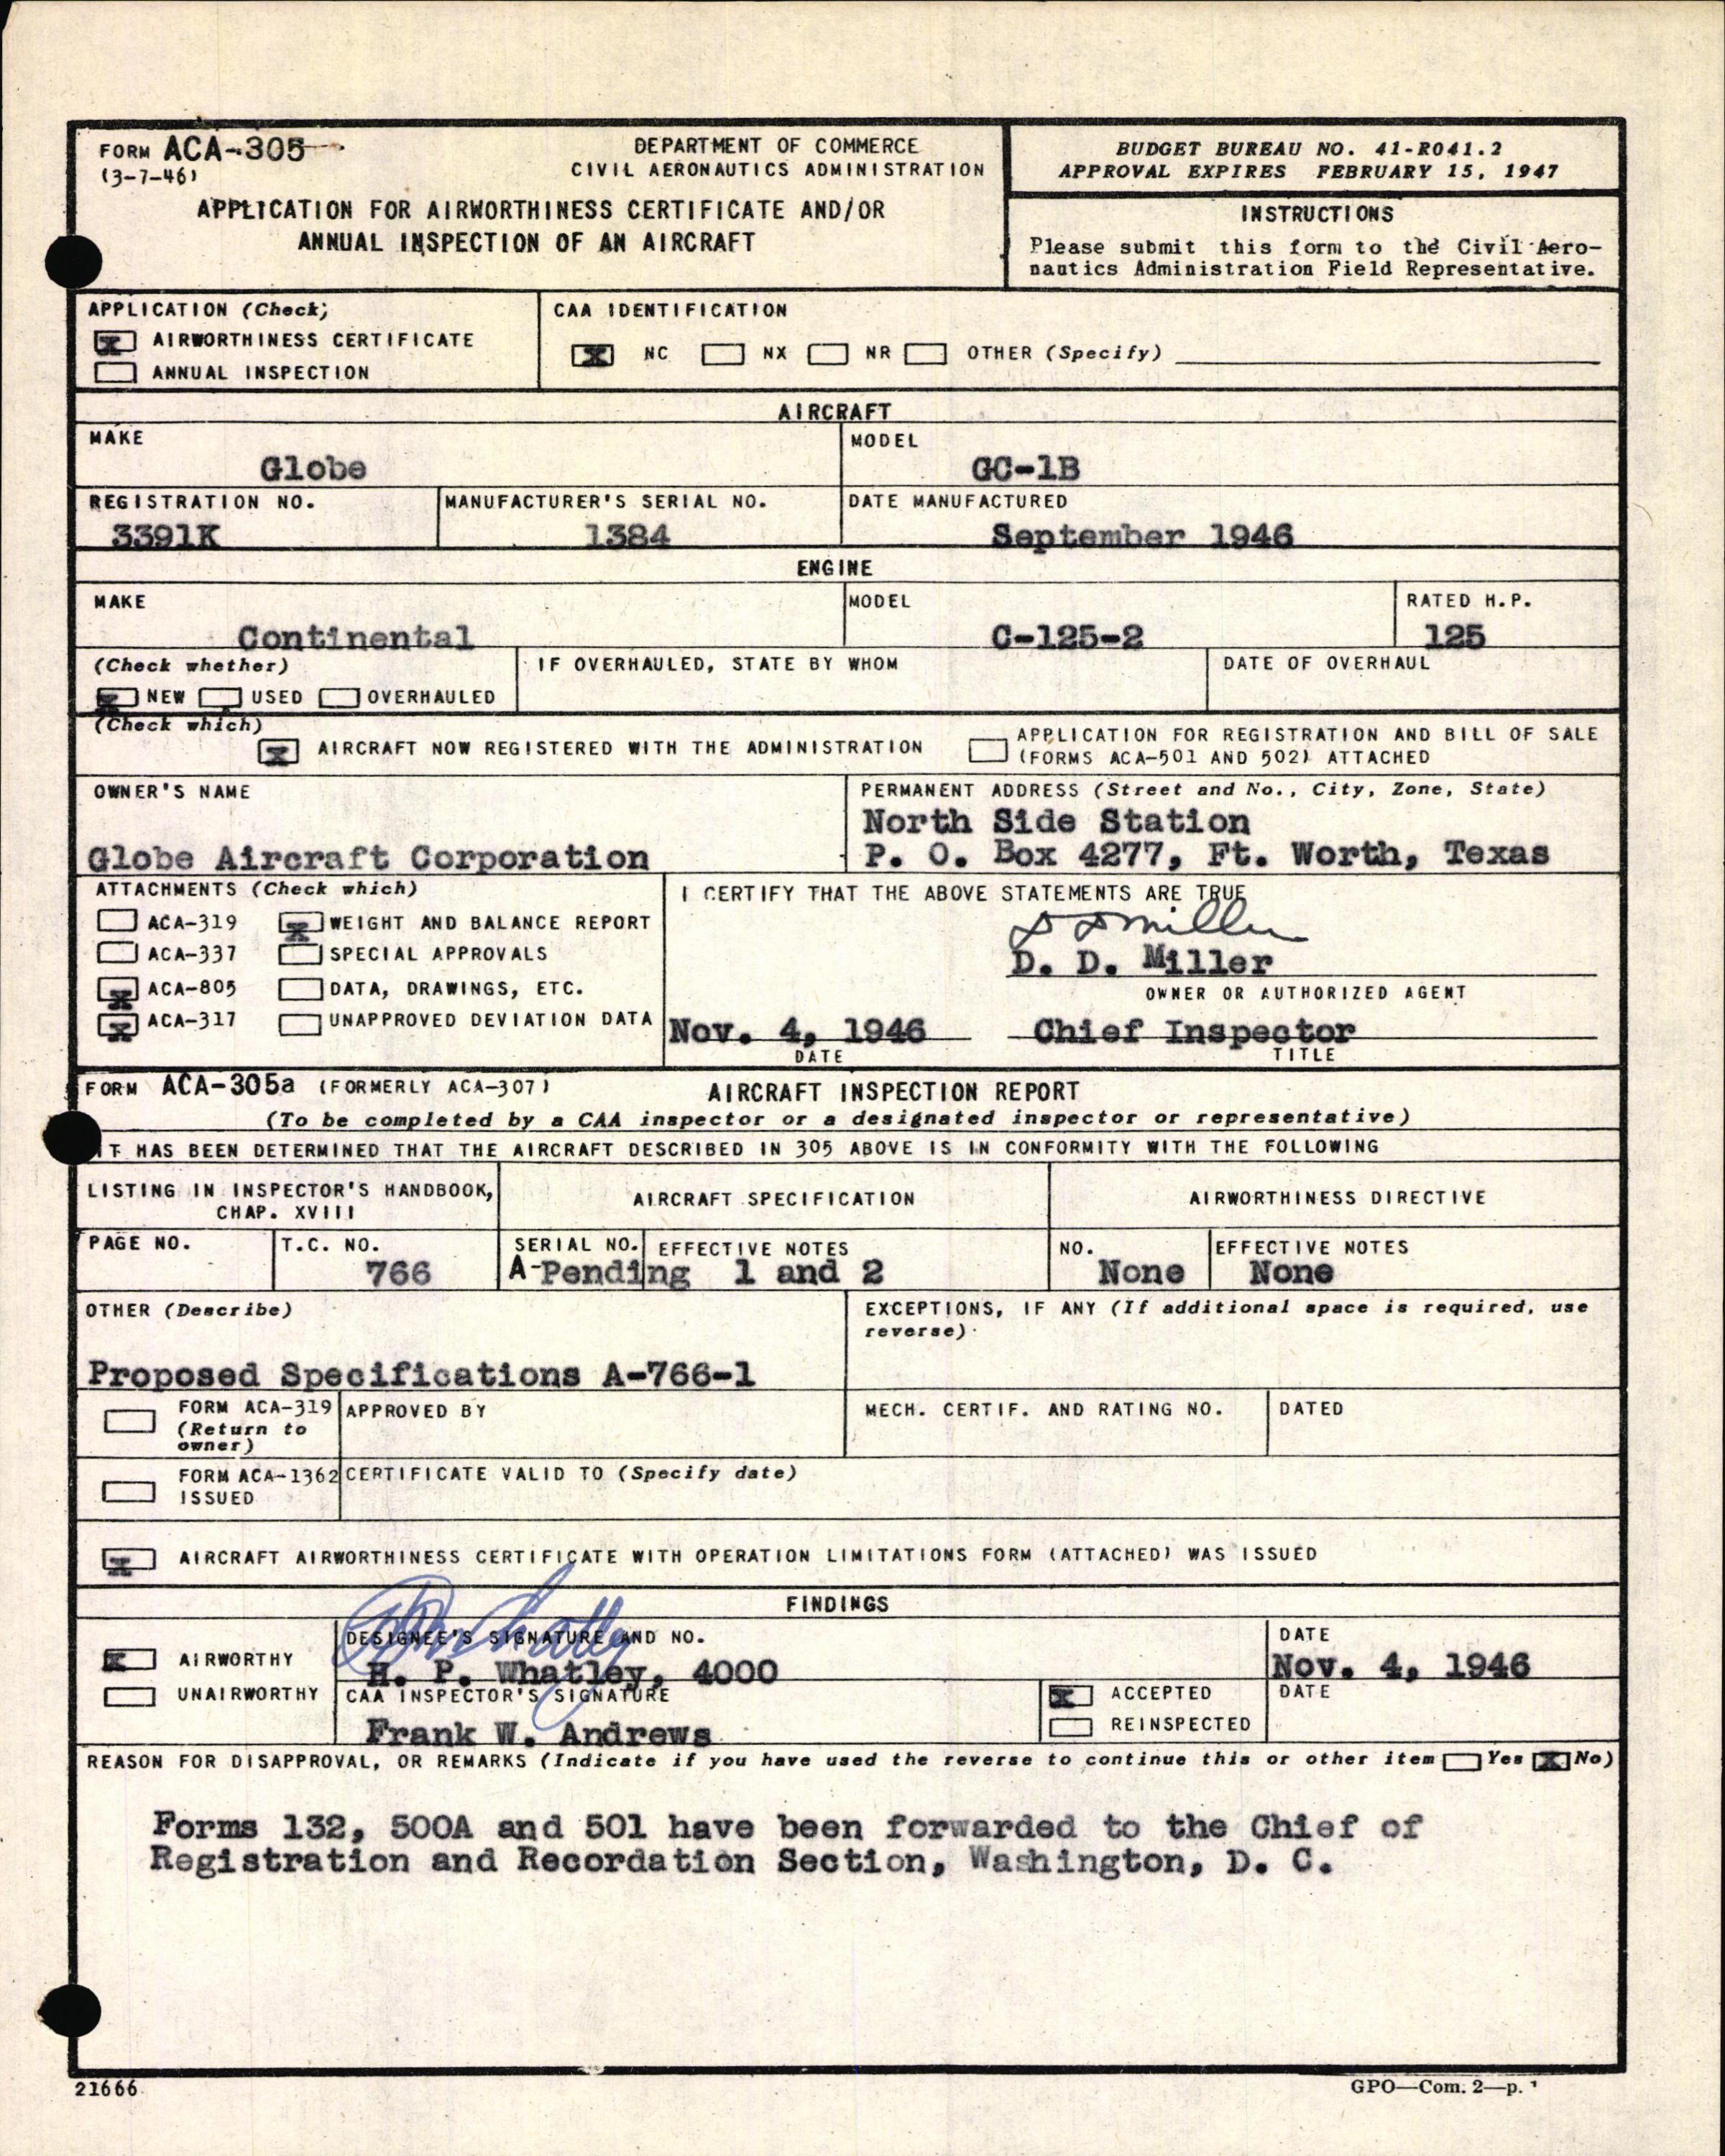 FORM ACA-305
(3-7-46)
DEPARTMENT OF COMMERCE
CIVIL AERONAUTICS ADMINISTRATION
APPLICATION FOR AIRWORTHINESS CERTIFICATE AND/OR
ANNUAL INSPECTION OF AN AIRCRAFT
BUDGET BUREAU NO. 41-R041.2
APPROVAL EXPIRES FEBRUARY 15, 1947
INSTRUCTIONS
Please submit this form to the Civil Aero-
nautics Administration Field Representative.
APPLICATION (Check)
X AIRWORTHINESS CERTIFICATE
ANNUAL INSPECTION
CAA IDENTIFICATION
X NC NX NR OTHER (Specify)
AIRCRAFT
MAKE
Globe
MODEL
GC-1B
REGISTRATION NO.
3391K
MANUFACTURER'S SERIAL NO.
1384
DATE MANUFACTURED
September 1946
ENGINE
MAKE
Continental
MODEL
C-125-2
RATED H.P.
125
(Check whether)
X NEW USED OVERHAULED
IF OVERHAULED, STATE BY WHOM
DATE OF OVERHAUL
(Check which)
X AIRCRAFT NOW REGISTERED WITH THE ADMINISTRATION
APPLICATION FOR REGISTRATION AND BILL OF SALE
(FORMS ACA-501 AND 502) ATTACHED
OWNER'S NAME
Globe Aircraft Corporation
PERMANENT ADDRESS (Street and No., City, Zone, State)
North Side Station
P. O. Box 4277, Ft. Worth, Texas
ATTACHMENTS (Check which)
ACA-319 X WEIGHT AND BALANCE REPORT
ACA-337 SPECIAL APPROVALS
X ACA-805 DATA, DRAWINGS, ETC.
X ACA-317 UNAPPROVED DEVIATION DATA
I CERTIFY THAT THE ABOVE STATEMENTS ARE TRUE
D D Miller
D. D. Miller
OWNER OR AUTHORIZED AGENT
Nov. 4, 1946 Chief Inspector
DATE TITLE
FORM ACA-305a (FORMERLY ACA-307) AIRCRAFT INSPECTION REPORT
(To be completed by a CAA inspector or a designated inspector or representative)
IT HAS BEEN DETERMINED THAT THE AIRCRAFT DESCRIBED IN 305 ABOVE IS IN CONFORMITY WITH THE FOLLOWING
LISTING IN INSPECTOR'S HANDBOOK,
CHAP. XVIII
AIRCRAFT SPECIFICATION
AIRWORTHINESS DIRECTIVE
PAGE NO.
T.C. NO.
766
SERIAL NO. EFFECTIVE NOTES
A-Pending 1 and 2
NO.
None
EFFECTIVE NOTES
None
OTHER (Describe)
Proposed Specifications A-766-1
EXCEPTIONS, IF ANY (If additional space is required, use
reverse)
FORM ACA-319
(Return to
owner)
APPROVED BY
MECH. CERTIF. AND RATING NO.
DATED
FORM ACA-1362
ISSUED
CERTIFICATE VALID TO (Specify date)
X AIRCRAFT AIRWORTHINESS CERTIFICATE WITH OPERATION LIMITATIONS FORM (ATTACHED) WAS ISSUED
FINDINGS
X AIRWORTHY
UNAIRWORTHY
DESIGNEE'S SIGNATURE AND NO.
H. P. Whatley, 4000
DATE
Nov. 4, 1946
CAA INSPECTOR'S SIGNATURE
Frank W. Andrews
X ACCEPTED
REINSPECTED
DATE
REASON FOR DISAPPROVAL, OR REMARKS (Indicate if you have used the reverse to continue this or other item Yes X No)
Forms 132, 500A and 501 have been forwarded to the Chief of
Registration and Recordation Section, Washington, D. C.
21666
GPO—Com. 2—p.